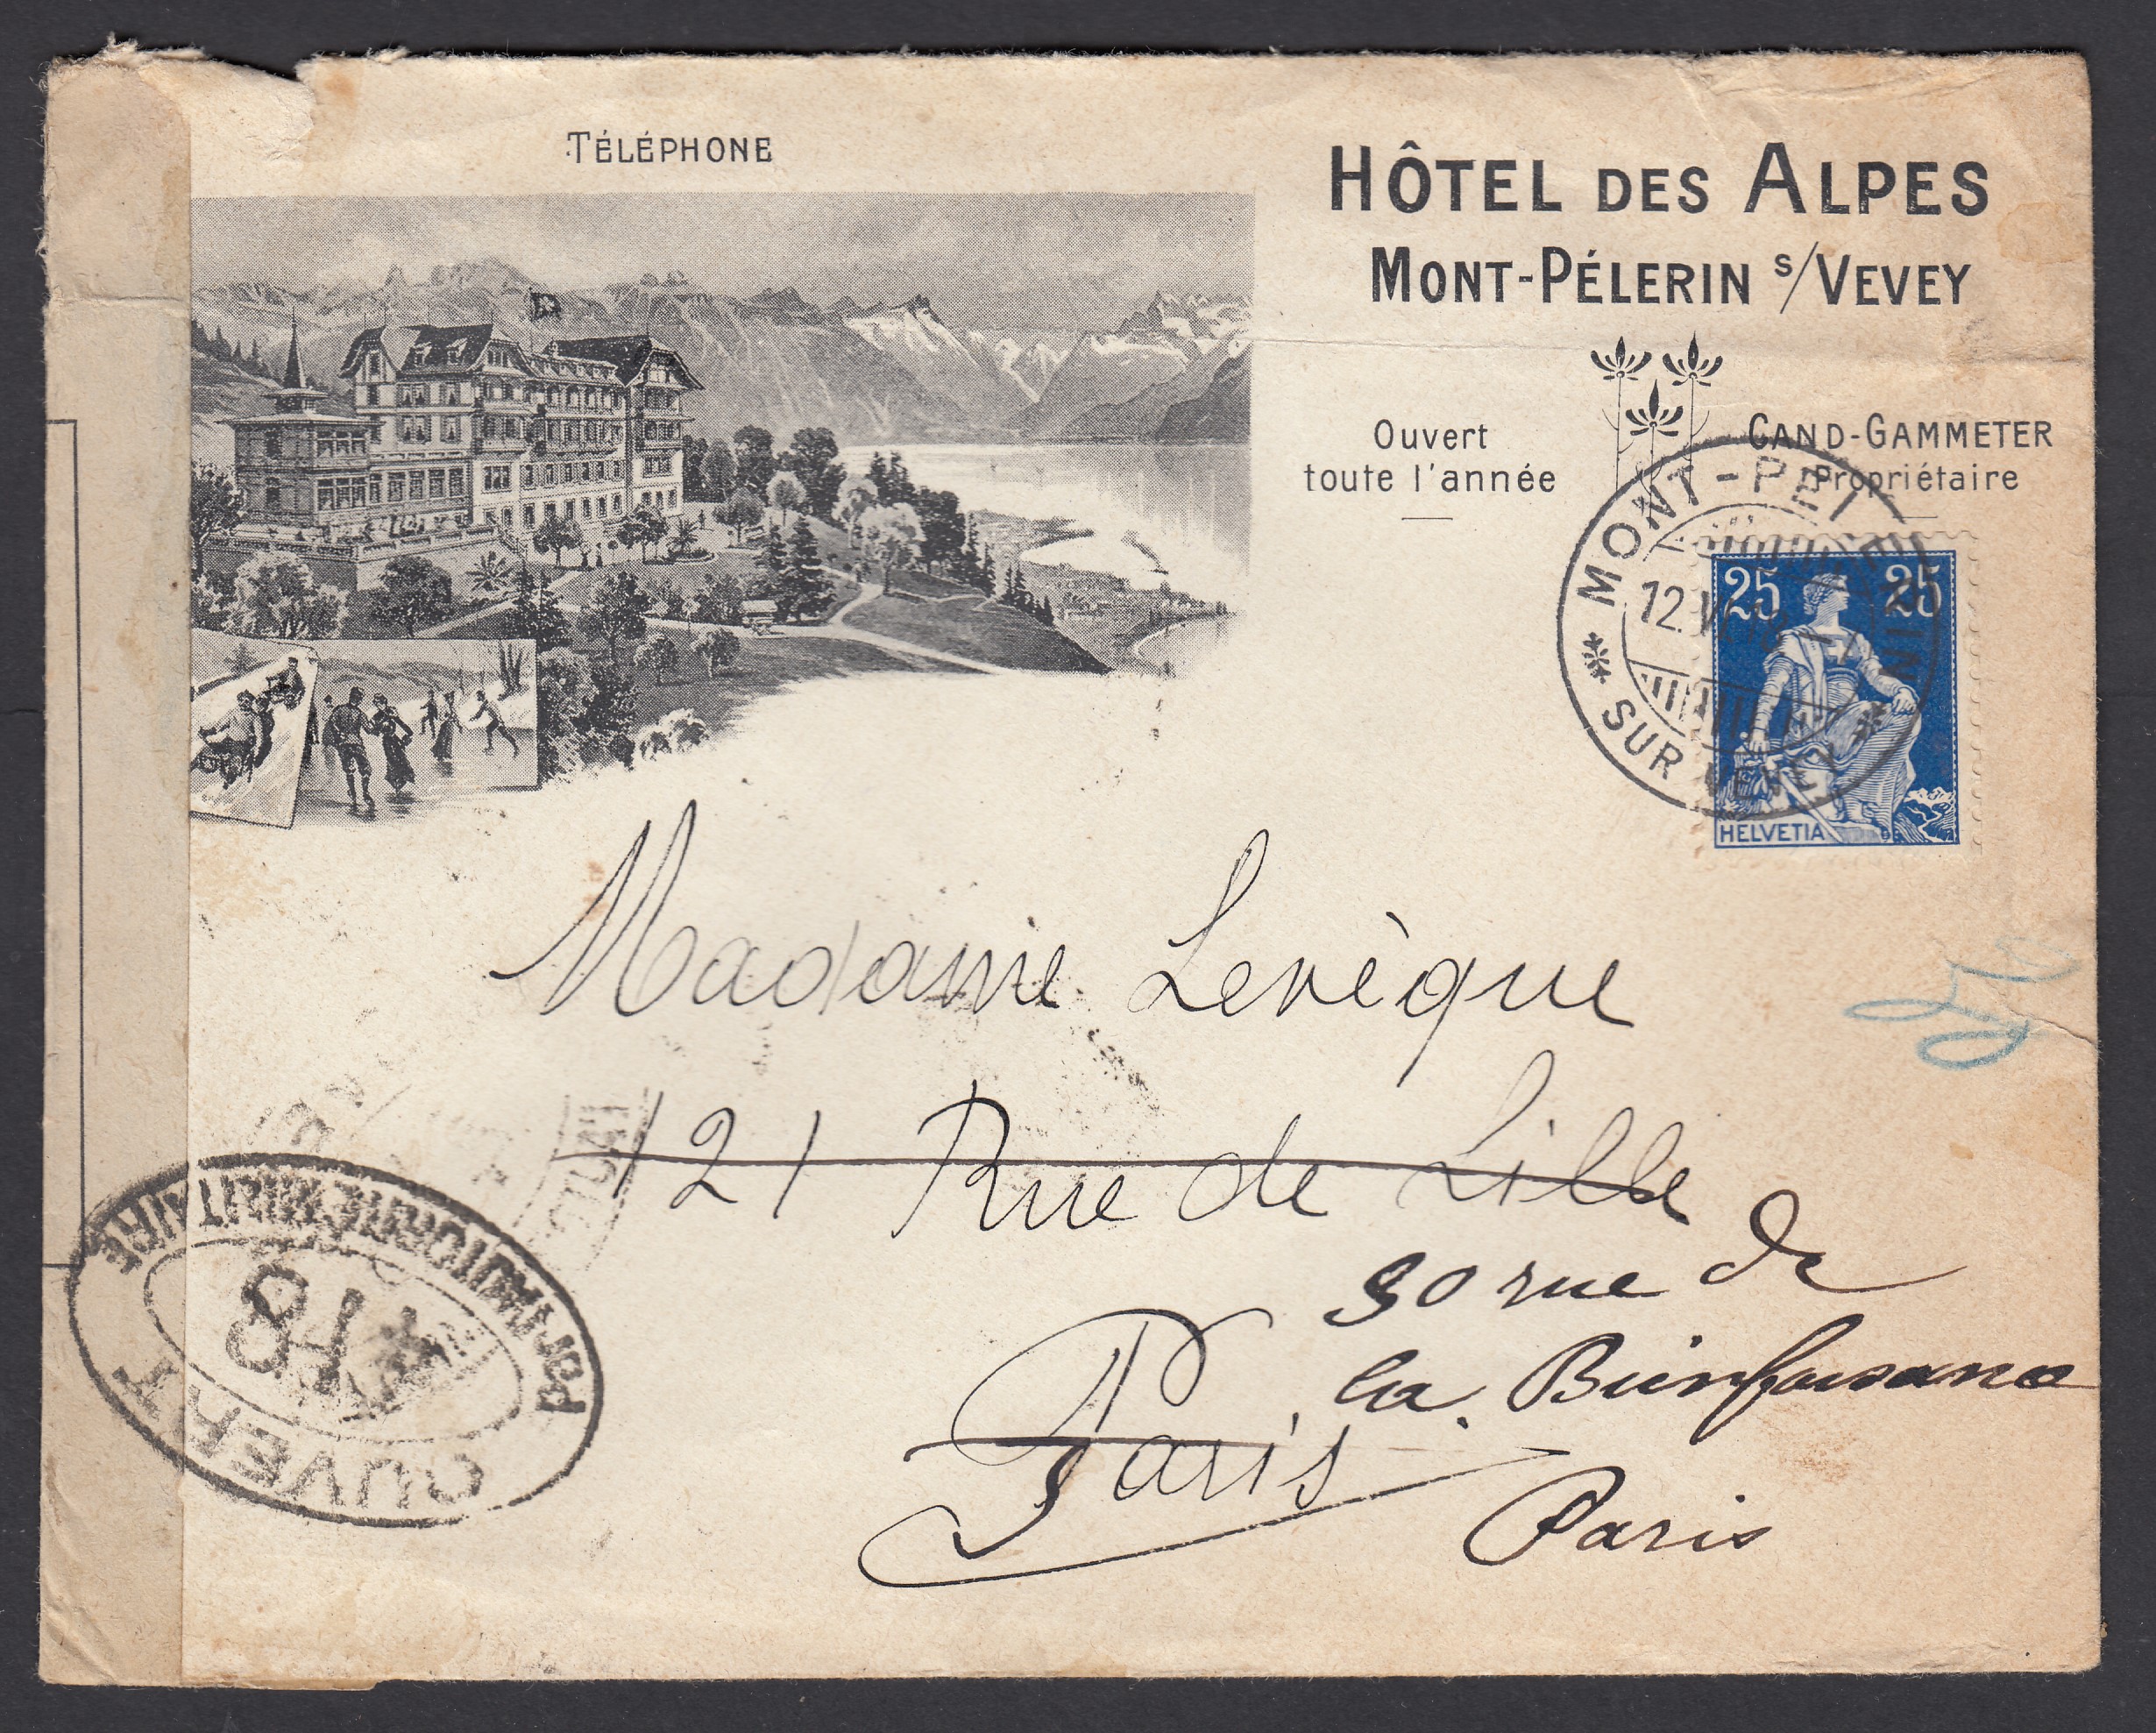 TÉLÉPHONE
HÔTEL DES ALPES
MONT-PÉLERIN s/VEVEY
Ouvert
toute l'année
CAND-GAMMETER
Propriétaire
MONT-PÉLERIN
12.
SUR VEVEY
25 25
HELVETIA
Madame Levèque
121 Rue de Lille
30 rue de
la Bienfaisance
Paris
Paris
PAR AUTORITÉ MILITAIRE
OUVERT